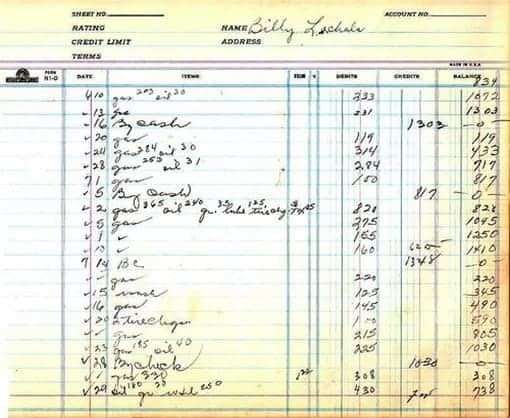 SHEET NO. ACCOUNT NO.
RATING NAME Billy
CREDIT LIMIT ADDRESS
TERMS
MADE IN U.S.A.
FORM N1-D DATE ITEMS FOLIO ✓ DEBITS CREDITS BALANCE
834
6 10 gas 203 oil 30 233 1072
✓ 13 gas 231 1303
✓ 16 By Cash 1303 -0-
✓ 20 gas 119 119
✓ 24 gas 284 oil 30 314 433
✓ 28 gas 253 oil 31 284 717
7 1 gas 100 817
✓ 5 By Cash 817 -0-
✓ 2 gas 265 oil 240 gr. lube 125 820 820
✓ 5 gas 275 1095
✓ 1 ✓ 155 1250
✓ ✓ 160 620 1410
7 14 BC 1348 -0-
✓ gas 220 220
✓ 15 wash 125 345
✓ 16 gas 145 490
✓ 20 2 tire chgs 100 590
✓ ✓ gas 215 805
✓ 23 gas 185 oil 40 225 1030
✓ 28 By check 1030 -0-
✓ ✓ gas 308 308
✓ 29 oil gr 430 738